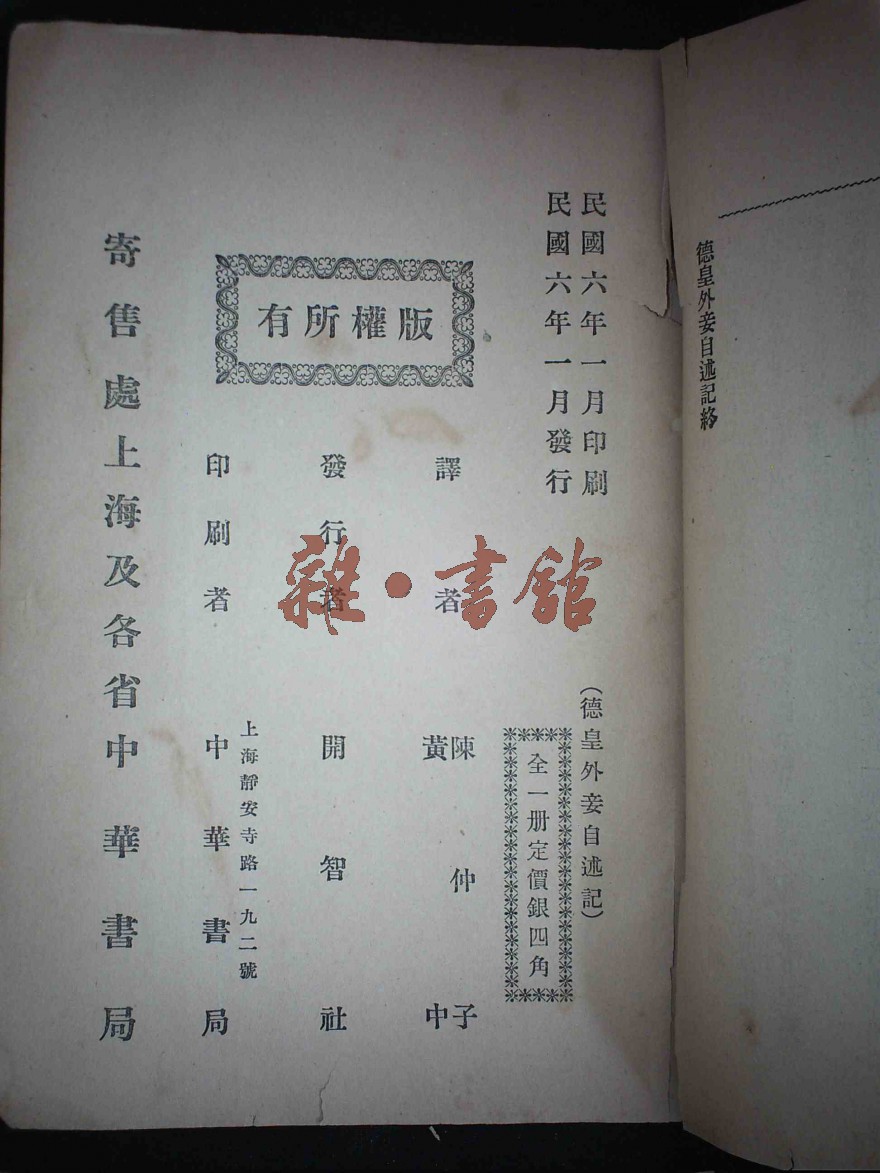 德皇外妾自述記終
民國六年一月印刷
民國六年一月發行
(德皇外妾自述記)
全一册定價銀四角
版權所有
譯者 陳仲子
黃中
發行者 開智社
上海靜安寺路一九二號
印刷者 中華書局
寄售處上海及各省中華書局
雜·書館